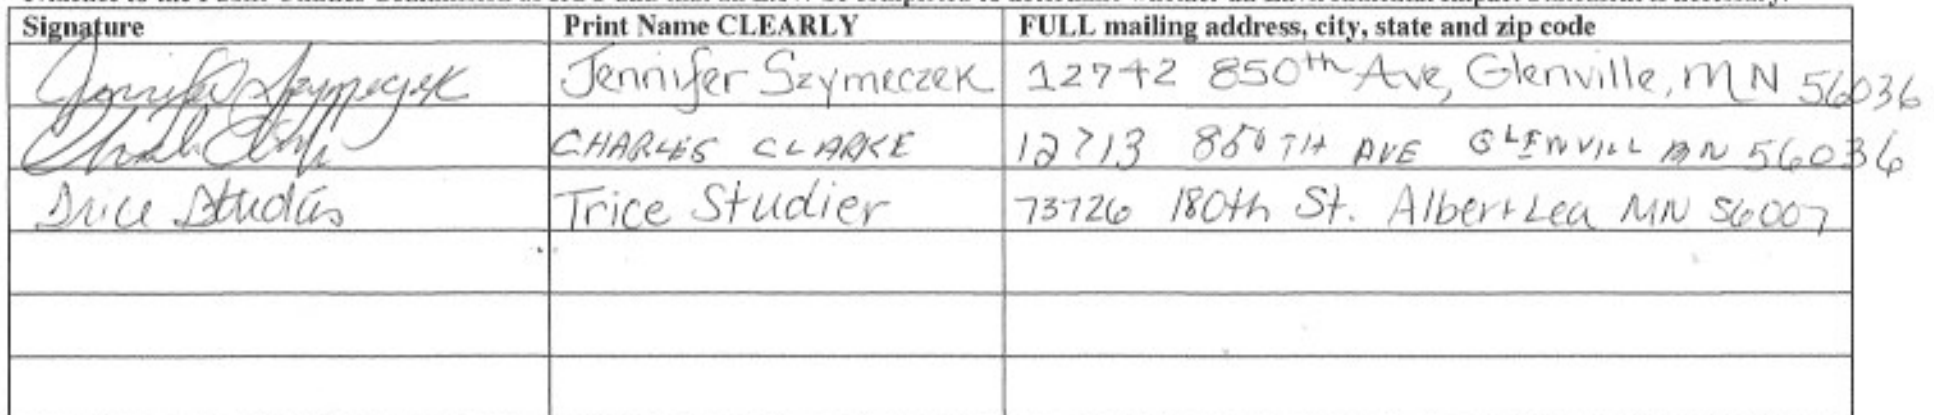 Signature Print Name CLEARLY FULL mailing address, city, state and zip code
Jennifer Szymeczek Jennifer Szymeczek 12742 850th Ave, Glenville, MN 56036
CHARLES CLARKE 12713 850TH AVE GLENVILL MN 56036
Trice Studier Trice Studier 73726 180th St. Albert Lea MN 56007